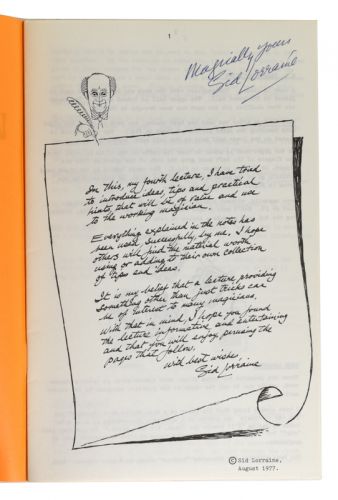 1
Magically yours
Sid Lorraine
In this, my fourth lecture, I have tried
to introduce ideas, tips and practical
hints, that will be of value and use
to the working magician.
Everything explained in the notes has
been used, successfully, by me. I hope
others will find the material worth
using or adding to their own collection
of tips and ideas.
It is my belief that a lecture providing
something other than just tricks can
be of interest to many magicians.
With that in mind I hope you found
the lecture informative and entertaining
and that you will enjoy perusing the
pages that follow.
With best wishes,
Sid Lorraine
© Sid Lorraine,
August 1977.